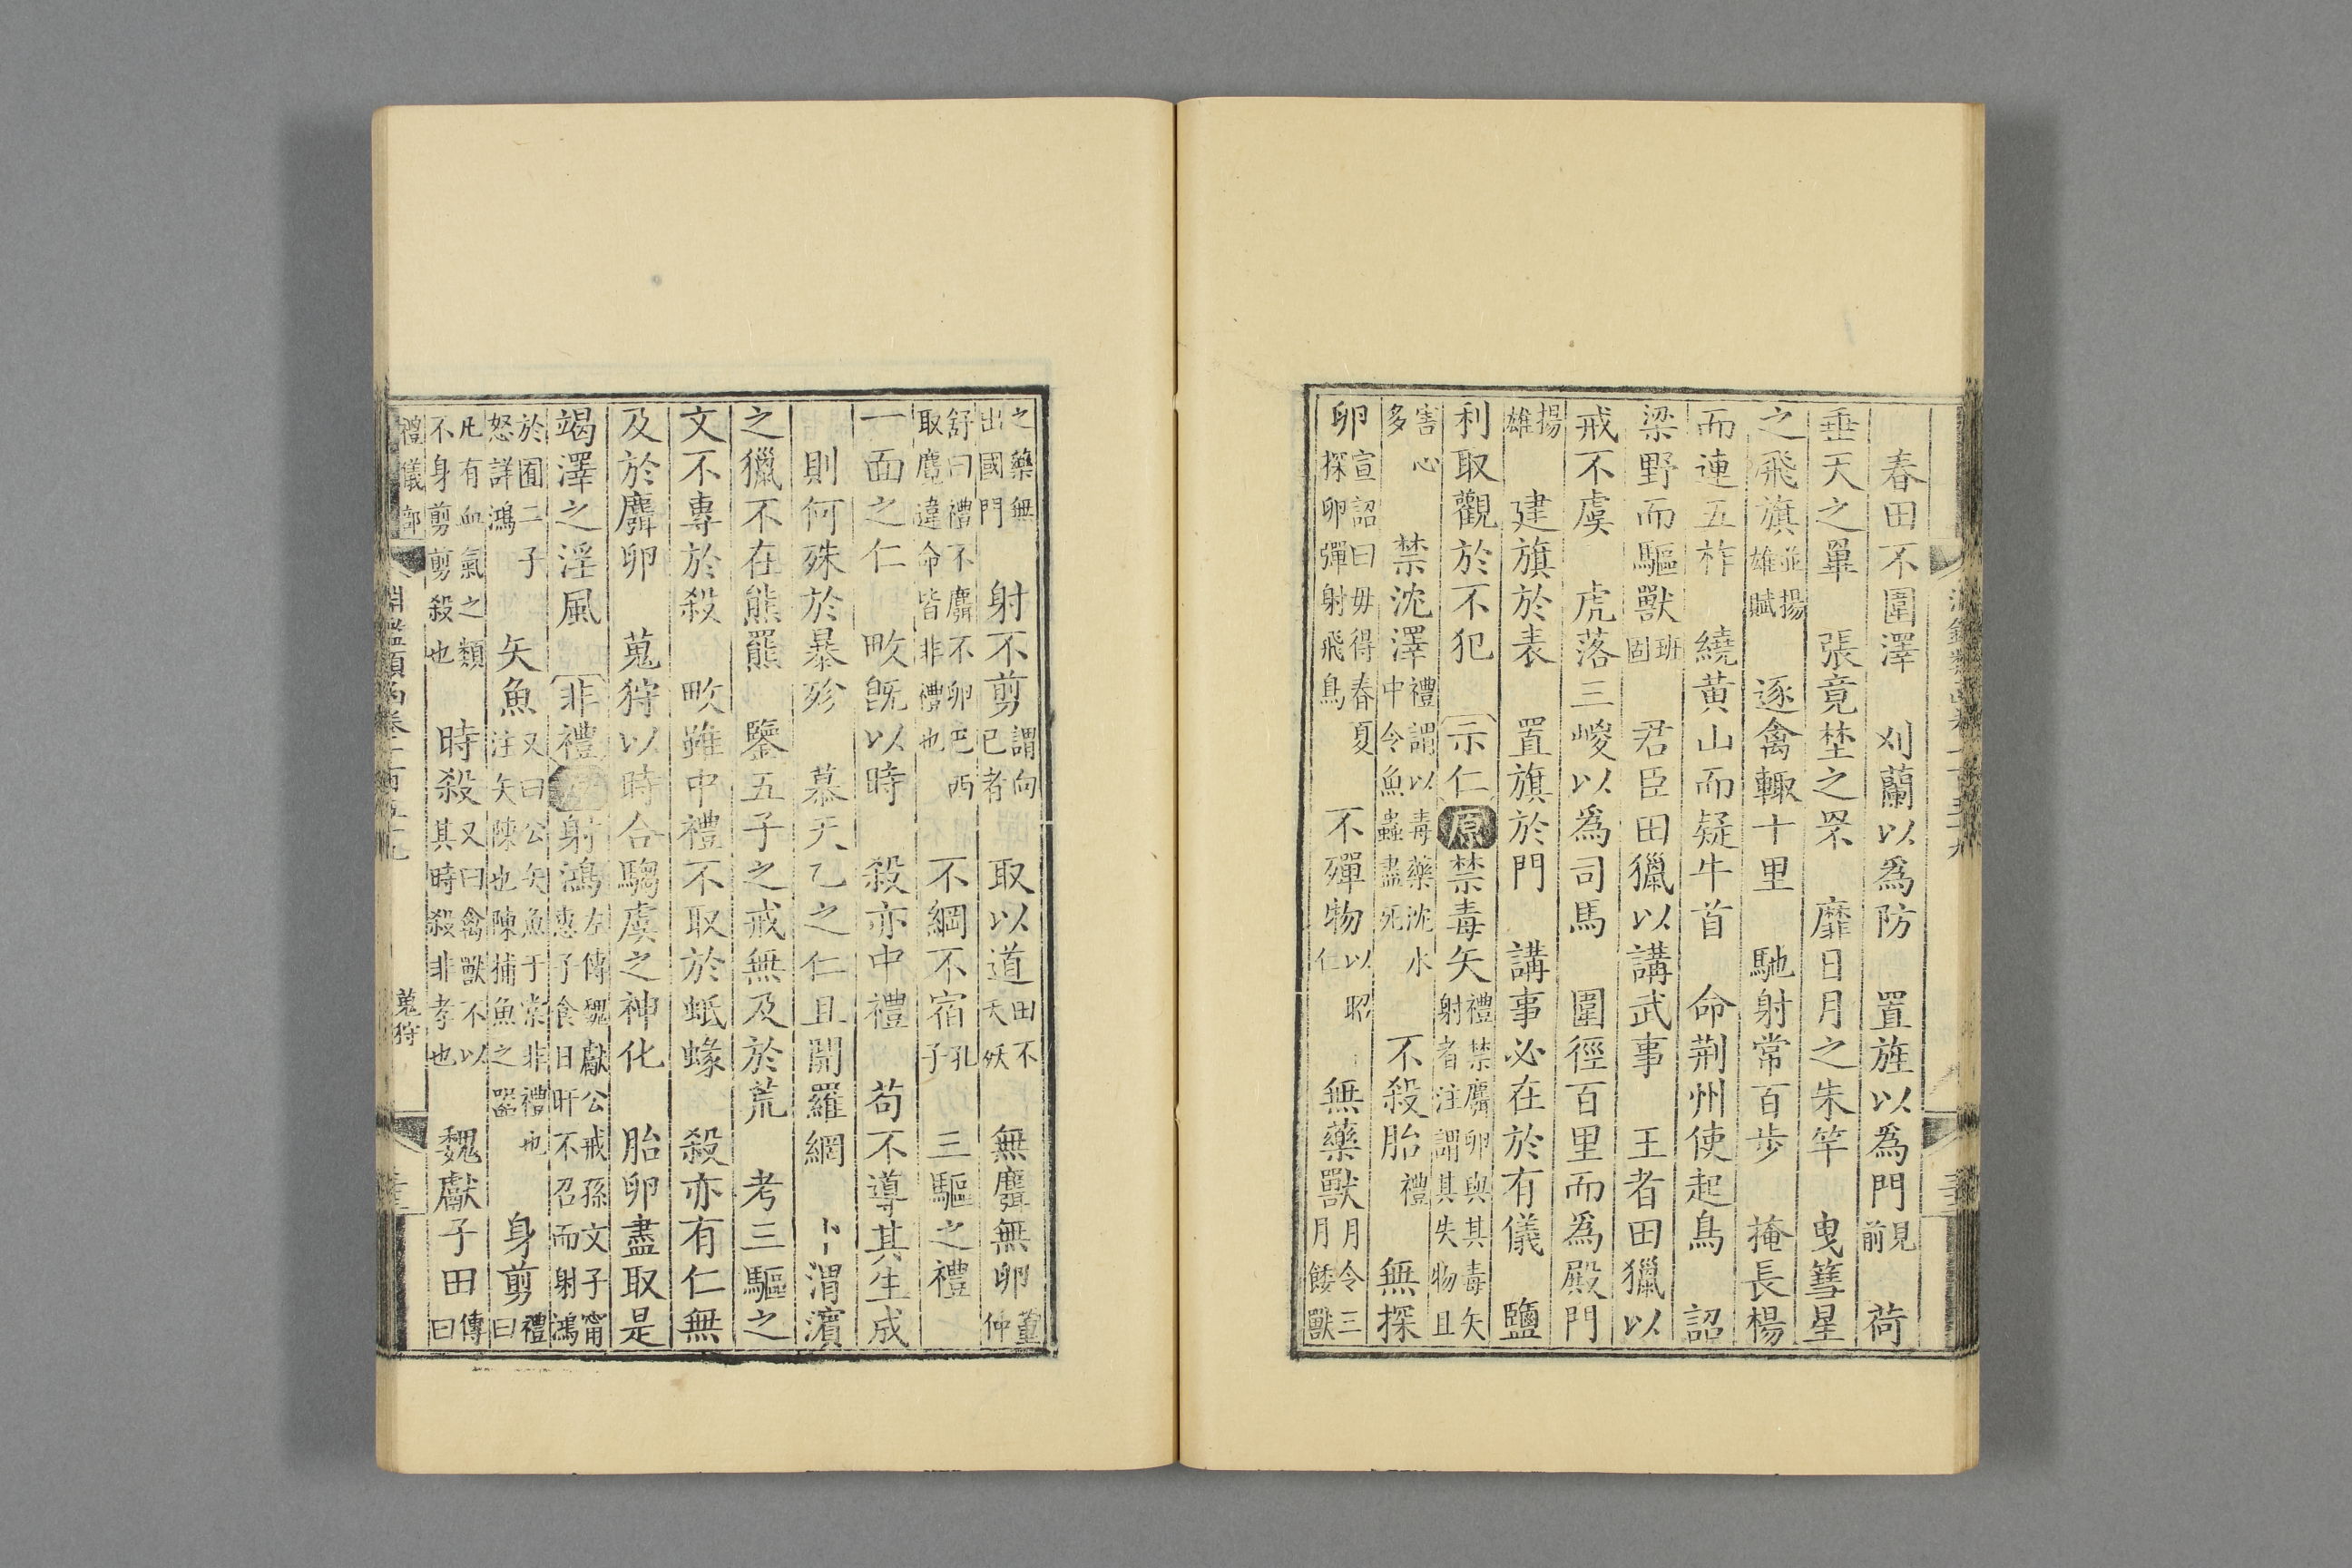 春田不圍澤　刈蘭以爲防　置旌以爲門見前　荷
垂天之畢　張竟埜之罘　靡日月之朱竿　曳彗星
之飛旗並揚雄賦　逐禽輙十里　馳射常百歩　掩長楊
而連五柞　繞黄山而疑牛首　命荆州使起鳥　詔
梁野而驅獸班固　君臣田獵以講武事　王者田獵以
戒不虞　虎落三嵕以爲司馬　圍徑百里而爲殿門
揚雄　建旗於表　置旗於門　講事必在於有儀　鹽
利取觀於不犯　示仁原禁毒矢禮禁麛卵與其毒矢射者注謂其失物且
害心多　禁沈澤禮謂以毒藥沈水中令魚蟲盡死　不殺胎禮　無探
卵宣詔曰毋得春夏探卵彈射飛鳥　不殫物以昭仁　無藥獸月令三月餧獸
之藥無出國門　射不剪謂向已者　取以道田不夭妖　無麛無卵董仲
舒曰禮不麛不卵巴西取麑違命皆非禮也　不綱不宿孔子　三驅之禮
一面之仁　畋旣以時　殺亦中禮　苟不導其生成
則何殊於暴殄　慕天乙之仁且開羅網　卜渭濱
之獵不在熊羆　鑒五子之戒無及於荒　考三驅之
文不專於殺　畋雖中禮不取於蚳蝝　殺亦有仁無
及於麛卵　蒐狩以時合騶虞之神化　胎卵盡取是
竭澤之淫風　非禮射鴻左傳魏獻公戒孫文子甯惠子食日旰不召而射鴻
於囿二子怒詳鴻　矢魚又曰公矢魚于棠非禮也注矢陳也陳捕魚之器　身剪禮曰
凡有血氣之類不身剪剪殺也　時殺又曰禽獸不以其時殺殺非孝也　魏獻子田傳曰
禮儀部　淵鑑類函卷一百五十九　蒐狩